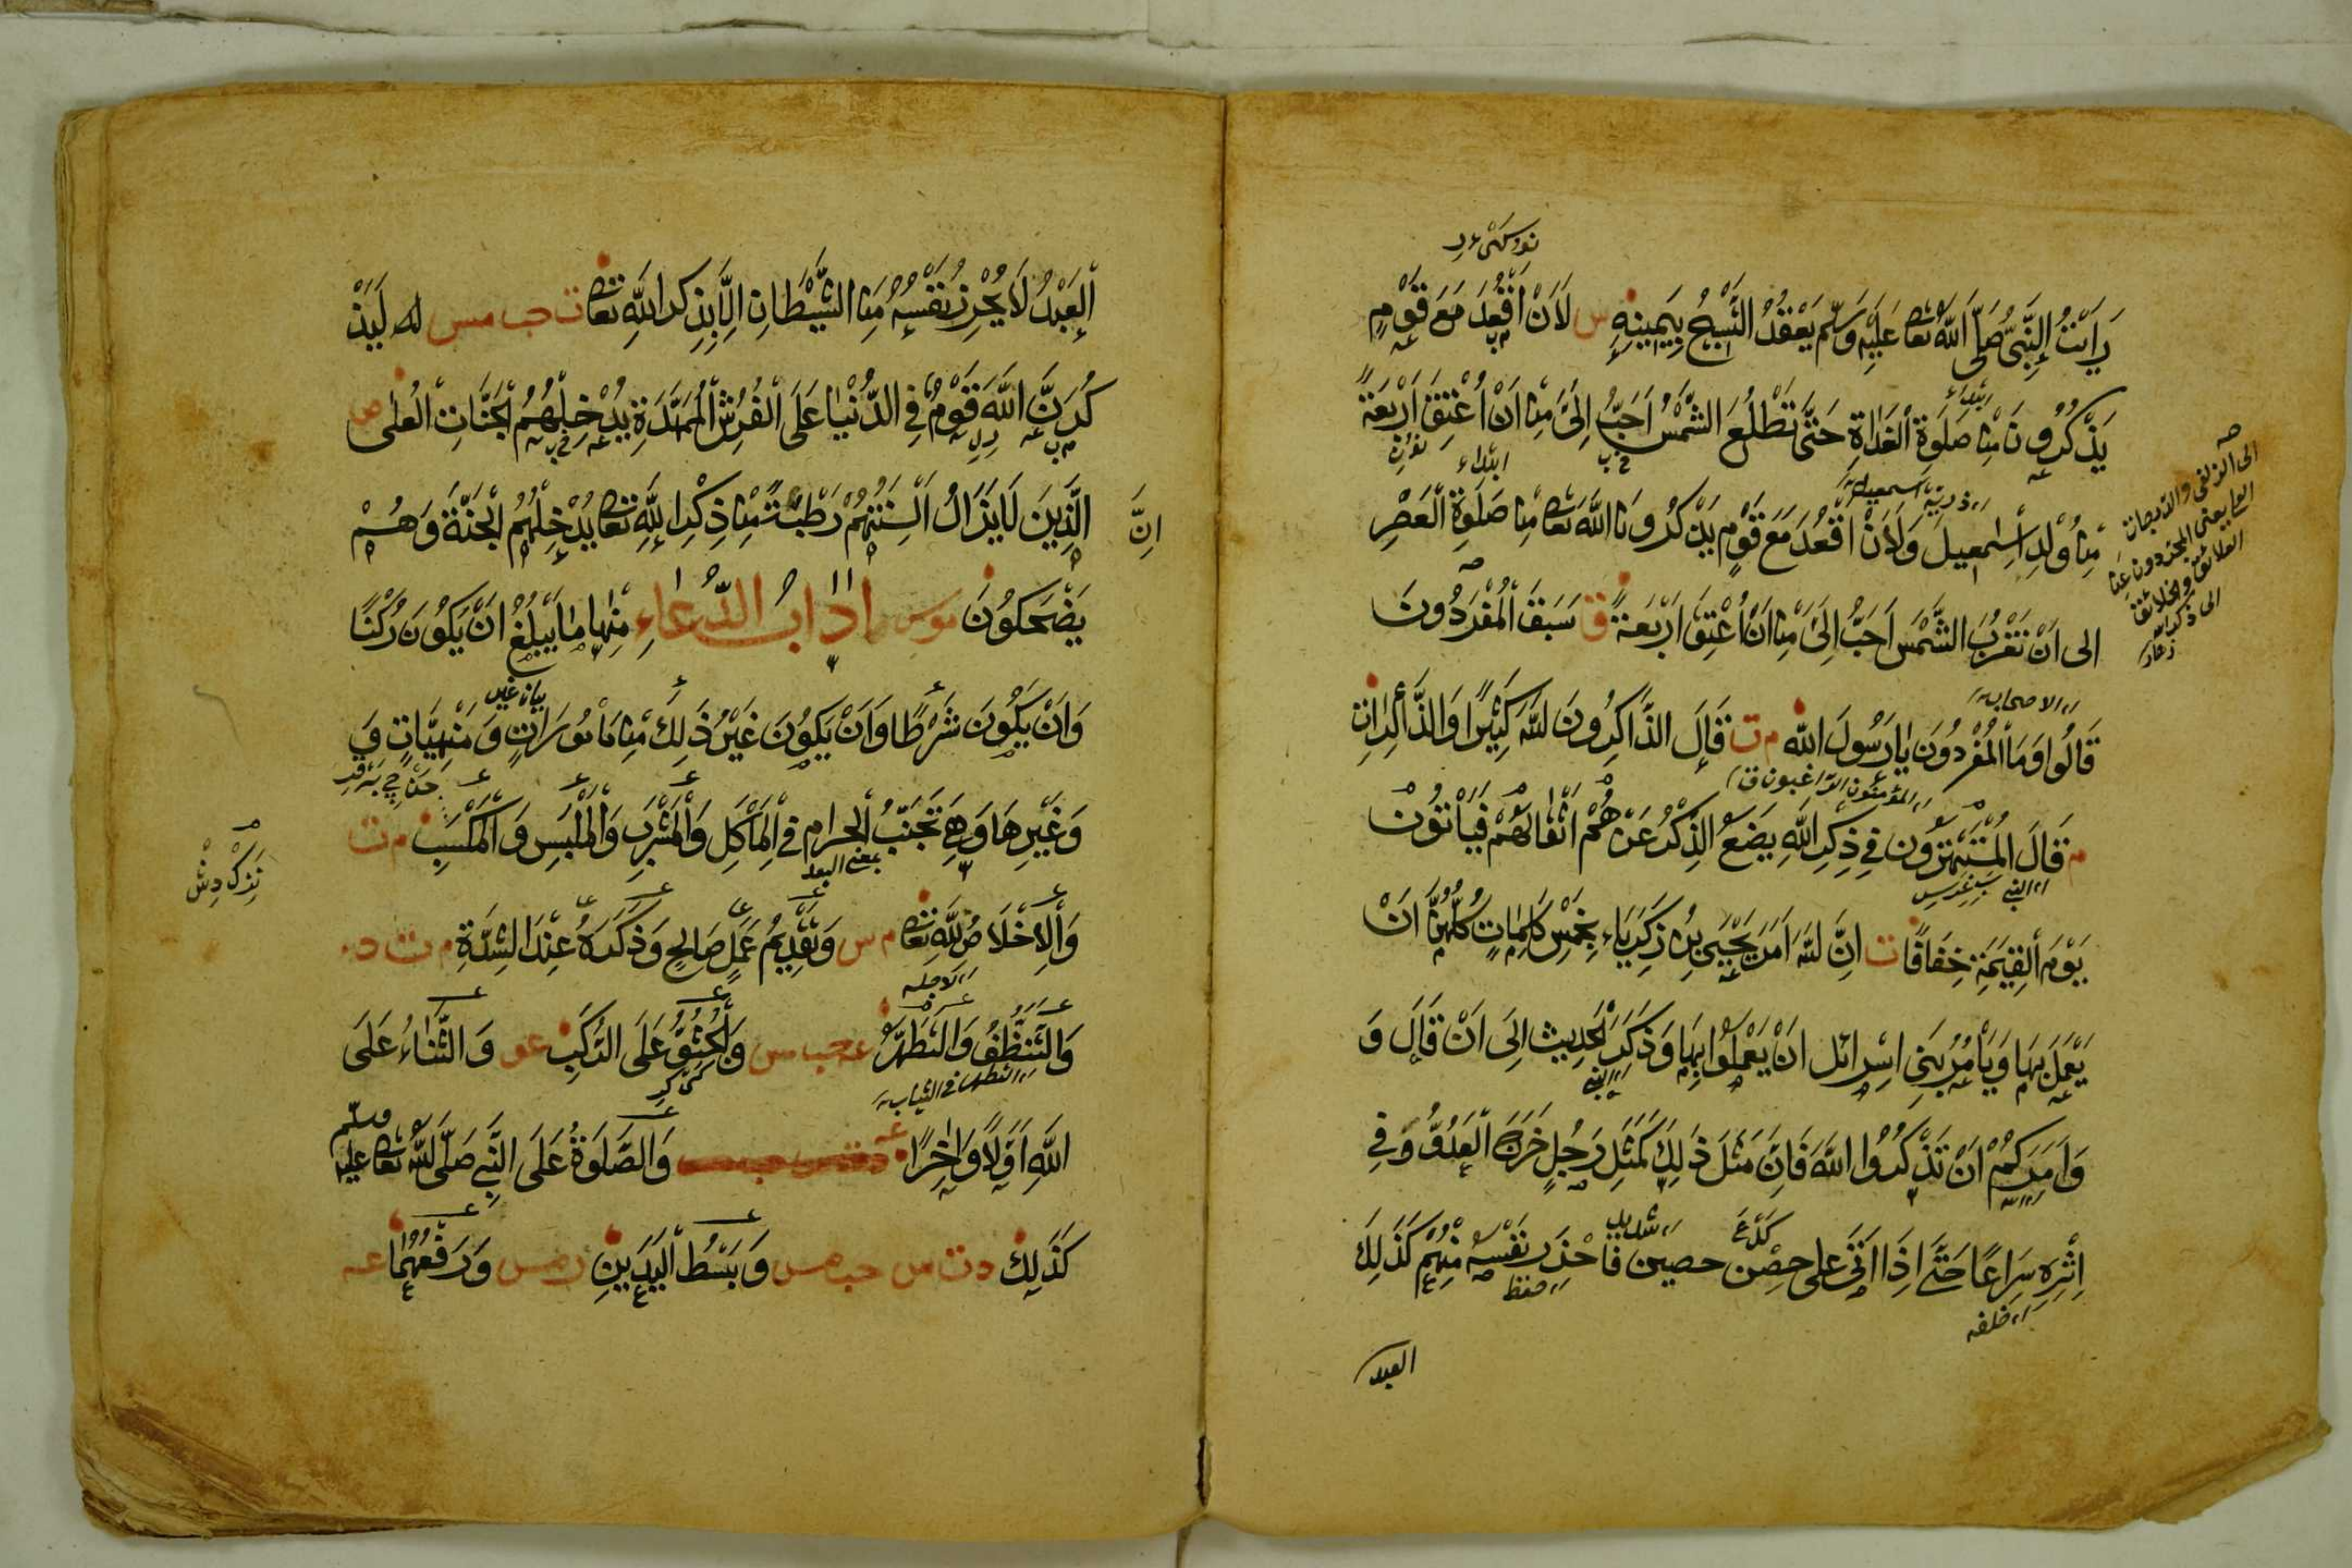 رَاَيْتُ النَّبِىَّ صَلَّى اللّٰهُ تَعَا عَلَيْهِ وَسَلَّمَ يَعْقُدُ التَّسْبِيْحَ بِيَمِيْنِهِ س لَاَنْ اَقْعُدَ مَعَ قَوْمٍ
يَذْكُرُوْنَ مِنْ صَلٰوةِ الْغَدٰاةِ حَتّٰى تَطْلُعَ الشَّمْسُ اَحَبُّ اِلَىَّ مِنْ اَنْ اُعْتِقَ اَرْبَعَةً
ابتداء
مِنْ وُلْدِ اِسْمٰعِيلَ وَلَاَنْ اَقْعُدَ مَعَ قَوْمٍ يَذْكُرُونَ اللّٰهَ تَعَا مِنْ صَلٰوةِ الْعَصْرِ
الى اَنْ تَغْرُبَ الشَّمْسُ اَحَبُّ اِلَىَّ مِنْ اَنْ اُعْتِقَ اَرْبَعَةً ق سَبَقَ الْمُفَرِّدُونَ
الى الزلفى والدرجات
العلا يعنى المجردون عن
العلائق والخلائق
الى ذكر الله
قَالُوا وَمَا الْمُفَرِّدُونَ يٰا رَسُولَ اللّٰه م ت قَالَ الذَّاكِرُونَ للّٰهَ كَثِيْرًا وَالذَّاكِرٰات
م قَالَ الْمُسْتَهْتَرُوْنَ فِى ذِكْرِ اللّٰهِ يَضَعُ الذِّكْرُ عَنْهُمْ اَثْقَالَهُمْ فَيَاْتُوْنَ
يَوْمَ الْقِيٰمَةِ خِفَافًا ت اِنَّ للّٰهَ اَمَرَ يَحْيَى بْنَ زَكَرِيَّاءَ بِخَمْسِ كَلِمٰاتٍ كُلُّهُنَّ اَنْ
يَعْمَلَ بِهَا وَيَاْمُرُ بَنِى اِسْرائل اَنْ يَعْمَلُوْا بِهَا وَذَكَرَ الْحَدِيث اِلَى اَنْ قَالَ وَ
وَاَمَرَكُمْ اَنْ تَذْكُرُوا اللّٰهَ فَاِنَّ مَثَلَ ذٰلِكَ كَمَثَلِ رَجُلٍ خَرَجَ الْعَدُوُّ فِى
اِثْرِهِ سِرَاعًا حَتّٰى اِذَا اَتٰى عَلى حِصْنٍ حصين فَاَحْرَزَ نَفْسَهُ مِنْهُمْ كَذٰلِكَ
خلفه
العبد
الْعَبْدُ لَا يُحْرِزُ نَفْسَهُ مِنَ الشَّيْطَانِ اِلَّا بِذِكْرِ اللّٰهِ تَعَا ت حب مس لَيَذْ
كُرَنَّ اللّٰهَ قَوْمٌ فِى الدُّنْيٰا عَلَى الْفُرُشِ الْمُمَهَّدَةِ يُدْخِلُهُمُ الْجَنَّاتِ الْعُلٰى ص
اِنَّ الَّذِينَ لَا يَزَالُ اَلْسِنَتُهُمْ رَطْبَةً مِنْ ذِكْرِ اللّٰهِ تَعَا يُدْخِلُهُمُ الْجَنَّةَ وَهُمْ
يَضْحَكُونَ مو س اٰدَابُ الدُّعَاءِ مِنْهَا مٰا يَبْلُغُ اَنْ يَكُوْنَ رُكْنًا
وَاَنْ يَكُوْنَ شَرْطًا وَاَنْ يَكُوْنَ غَيْرُ ذٰلِكَ مِنْ مَاْمُورَاتٍ وَ مَنْهِيَّاتٍ وَ
وَغَيْرِهَا وَهِىَ تَجَنُّبُ الْحرام فِى الْمَاْكَلِ وَالْمَشْرَبِ وَالْمَلْبَسِ وَ الْمَكْسَبِ م ت
بمعنى البعد
وَالْاِخْلَاصُ لِلّٰهِ تَعَا م س وَتَقْدِيْمُ عَمَلٍ صَالِحٍ وَذَكَرَهُ عِنْدَ الشِّدَّةِ م ت د
وَالتَّنَظُّفُ وَالتَّطَهُّرُ عه حب مس وَالْجُثُوُّ عَلَى الرُّكَبِ عو وَ الثَّنٰاءُ عَلَى
التطهر فى الثياب
اللّٰهِ اَوَّلًا وَاٰخِرًا عه وَالصَّلٰوةُ عَلَى النَّبِىِ صَلَّى للّٰهُ تَعَا عَلَيْهِ وسلم
كَذٰلِكَ د ت س حب مس وَ بَسْطُ الْيَدَيْنِ ت مس وَ رَفْعُهُمَا عه